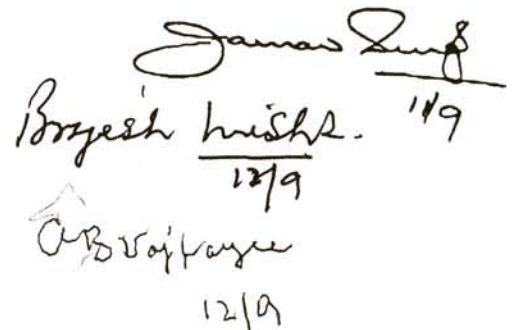 Jaswant Singh
11/9
Brajesh Mishra.
12/9
A B Vajpayee
12/9